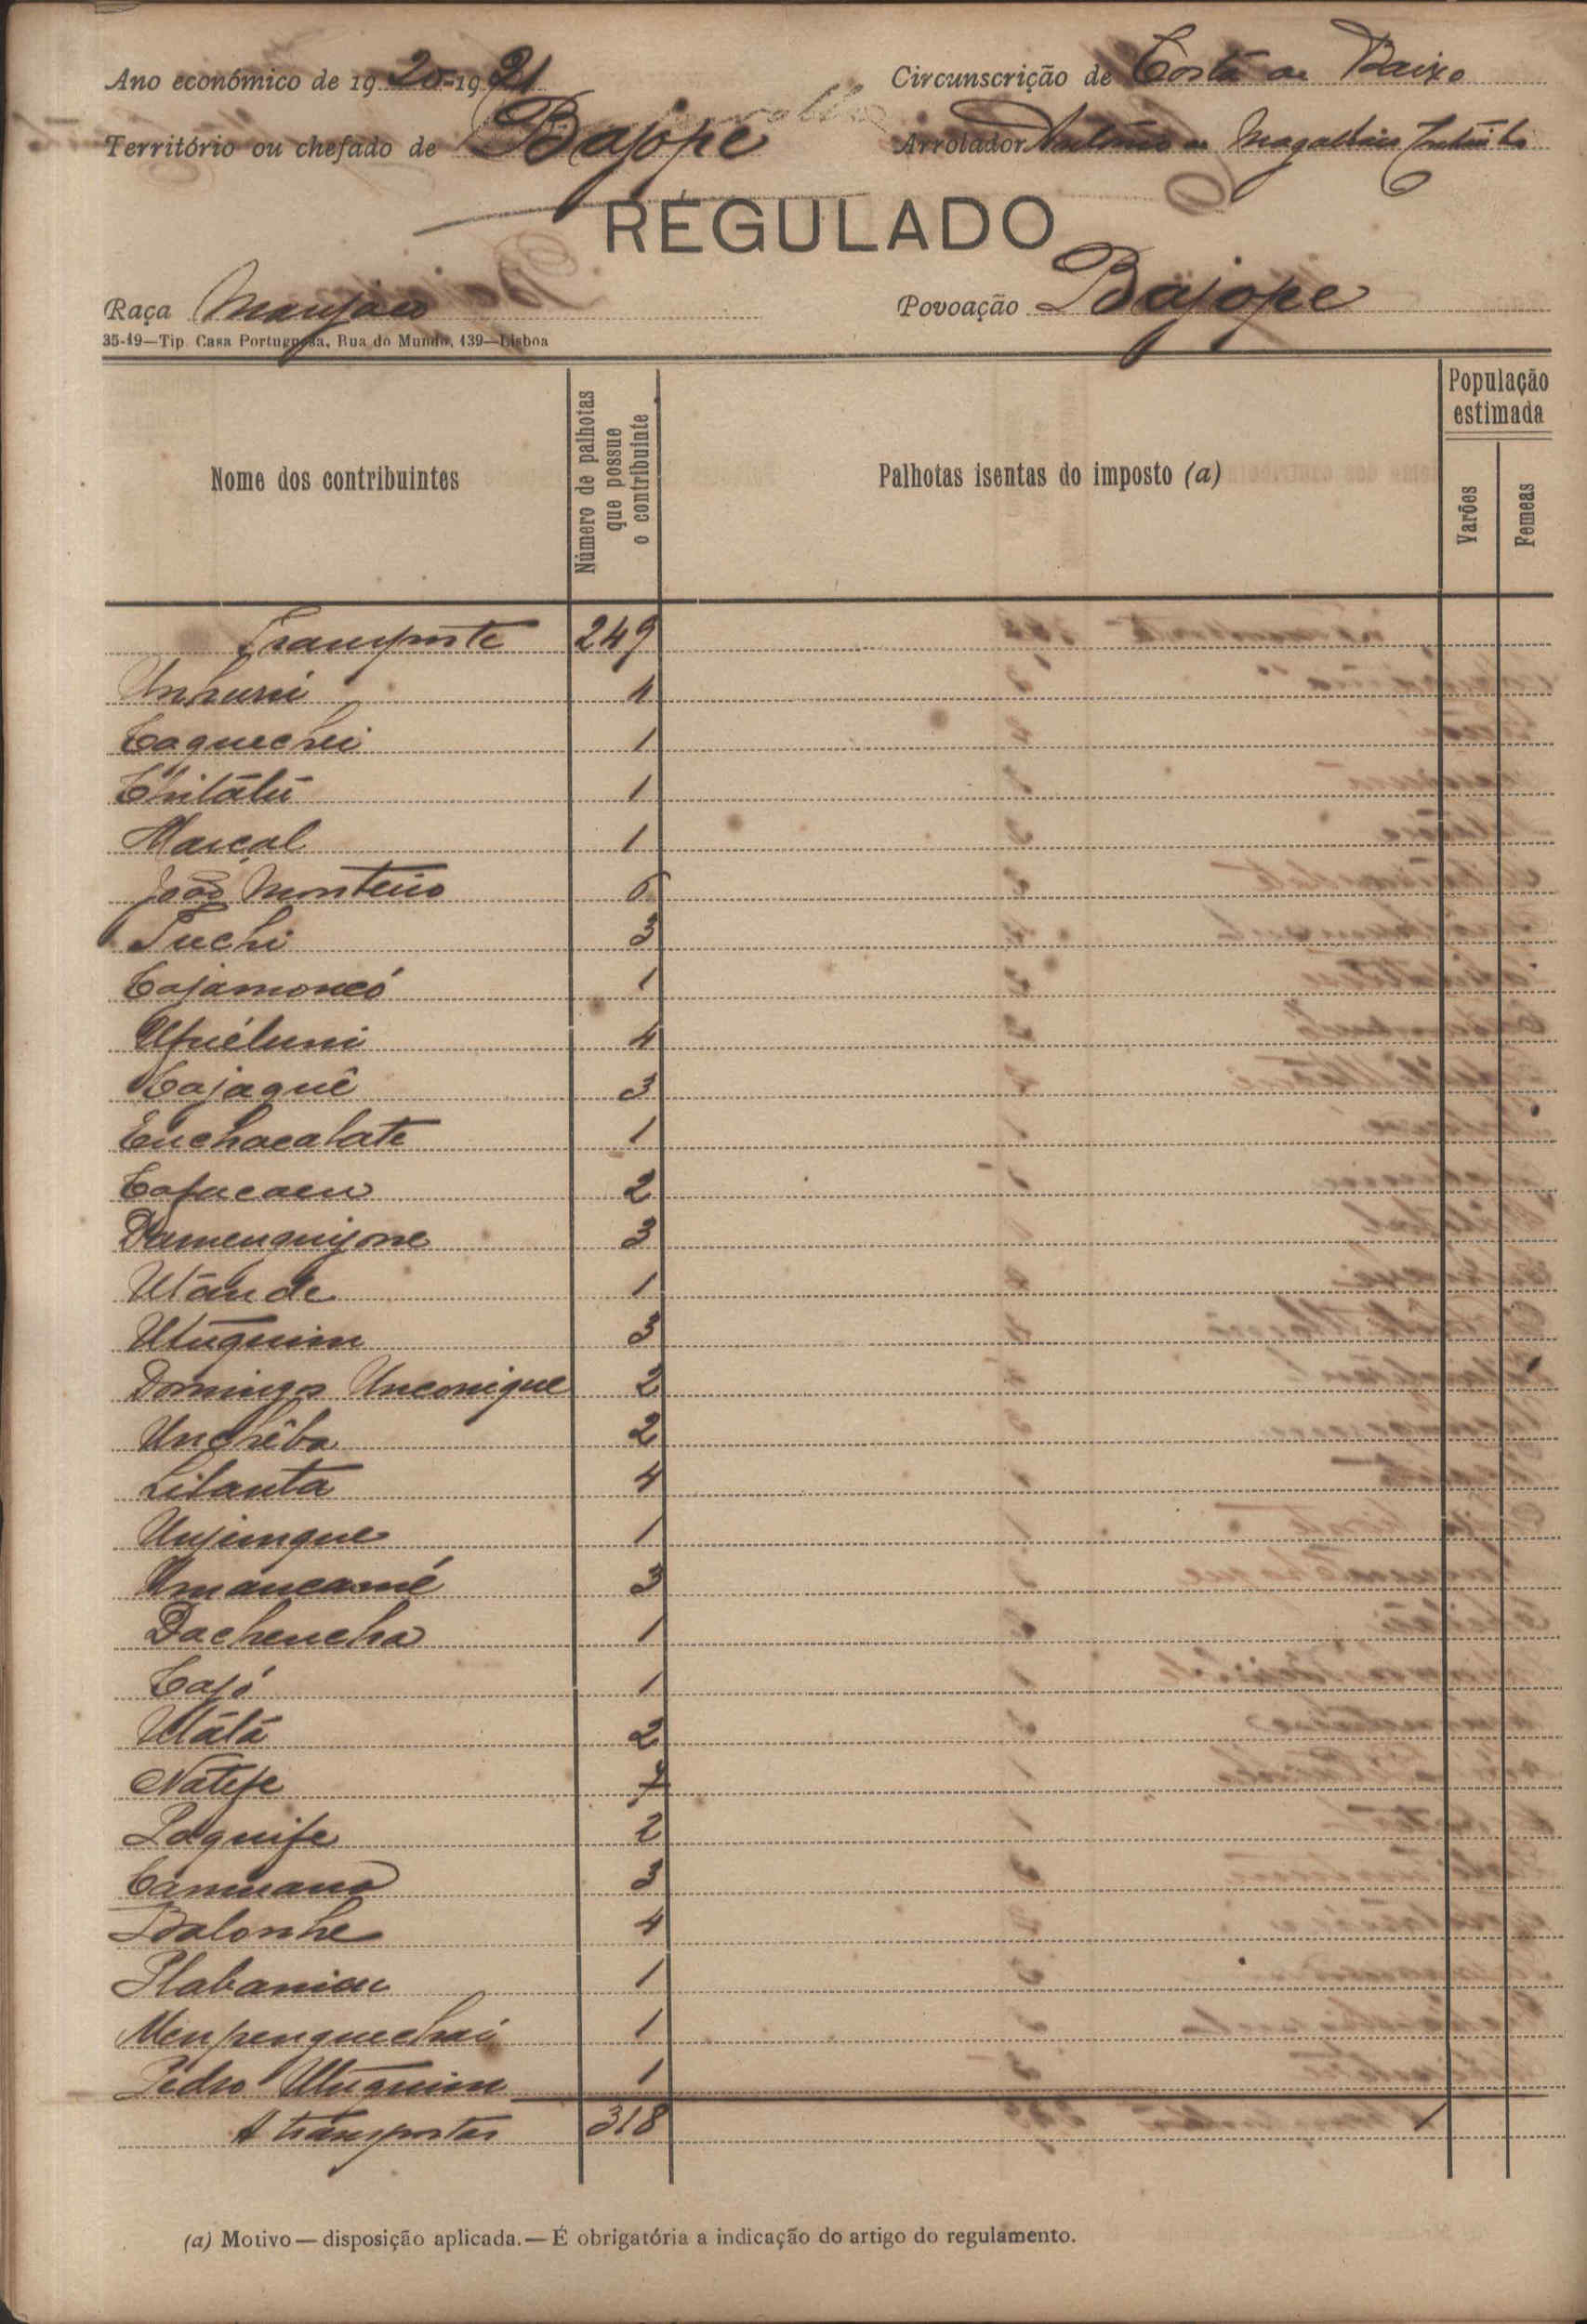 Ano económico de 1920-1921 Circunscrição de Costa de Baixo
Território ou chefado de Bajope Arrolador António de Magalhães
REGULADO
Raça Manjaco Povoação Bajope
35-19—Tip. Casa Portuguesa, Rua do Mundo, 139—Lisboa
Nome dos contribuintes
Número de palhotas que possue o contribuinte
Palhotas isentas do imposto (a)
População estimada
Varões
Femeas
Transporte 249
Unhuni 1
Caquechei 1
Chitálú 1
Marçal 1
João Monteiro 6
Tuchi 3
Cajamoncó 1
Upiéluni 4
Cajaquê 3
Enchacalate 1
Cafacaen 2
Damenquijone 3
Utànde 1
Utuquim 3
Domingos Unconique 2
Unchêba 2
Litanta 4
Unjimque 1
Umancamé 3
Dachencha 1
Cajó 1
Utátá 2
Natefe 7
Paquife 2
Canmano 3
Balonhe 4
Plabanian 1
Menpenquechai 1
Pedro Utuquim 1
A transportar 318
(a) Motivo—disposição aplicada.—É obrigatória a indicação do artigo do regulamento.